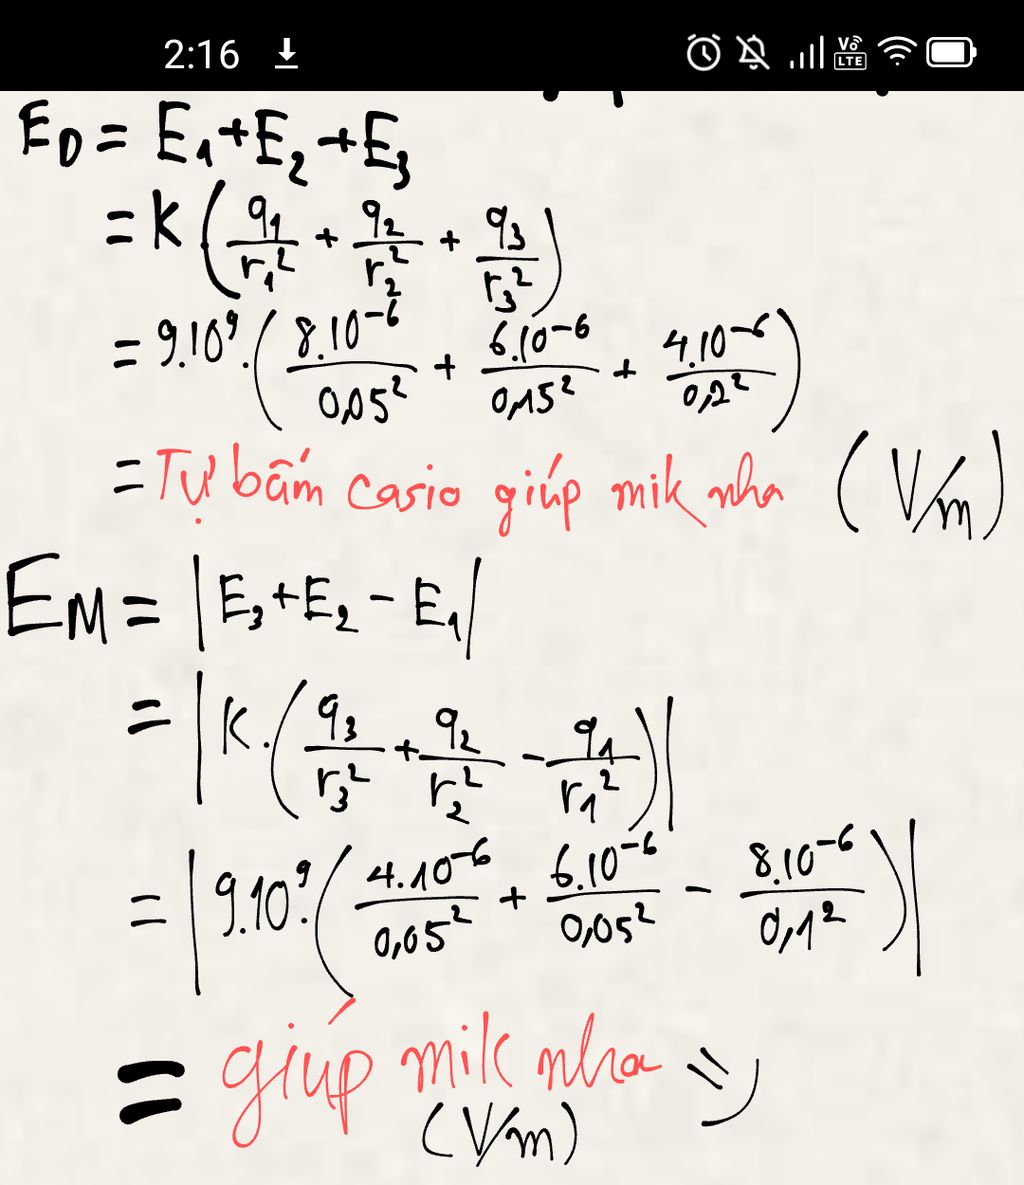 2:16 Vo LTE
E_D = E_1 + E_2 + E_3
= K (q_1/r_1^2 + q_2/r_2^2 + q_3/r_3^2)
= 9.10^9.(8.10^-6/0,05^2 + 6.10^-6/0,15^2 + 4.10^-6/0,2^2)
= Tự bấm casio giúp mik nha (V/m)
E_M = |E_3 + E_2 - E_1|
= |K.(q_3/r_3^2 + q_2/r_2^2 - q_1/r_1^2)|
= |9.10^9.(4.10^-6/0,05^2 + 6.10^-6/0,05^2 - 8.10^-6/0,1^2)|
= giúp mik nha =)
(V/m)